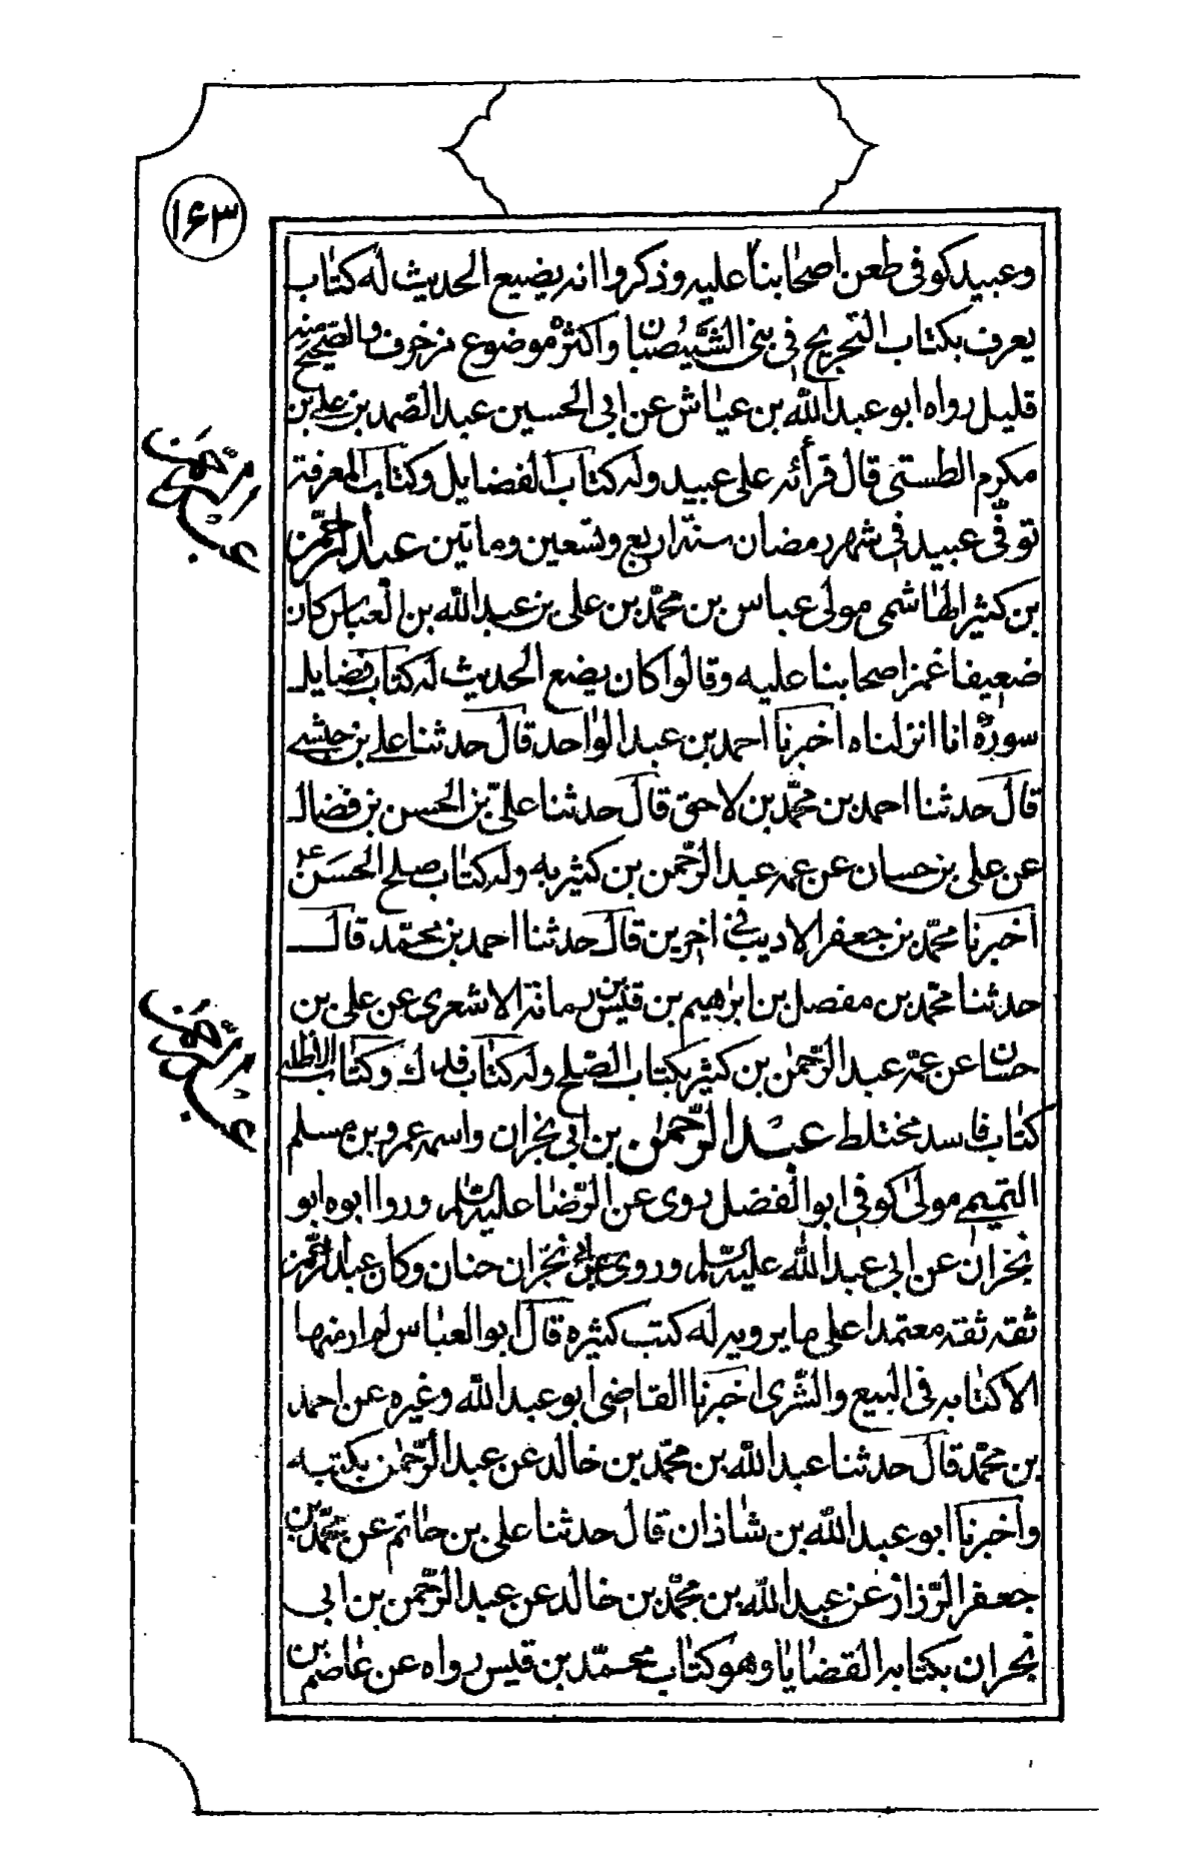 ۱۶۳
وعبيد كوفى طعن اصحابنا عليه وذكروا انه يضيع الحديث له كتاب
يعرف بكتاب التخريج فى بنى الشيصبان واكثره موضوع مزخرف والصحيح منه
قليل رواه ابو عبد الله بن عياش عن ابى الحسين عبد الصمد بن على بن
مكرم الطستى قال قرأته على عبيد وله كتاب الفضايل وكتاب المعرفة
توفّى عبيد فى شهر رمضان سنة اربع وتسعين وماتين عبد الرحمن
بن كثير الهاشمى مولى عباس بن محمد بن على بن عبد الله بن العباس كان
ضعيفا غمز اصحابنا عليه وقالوا كان يضع الحديث له كتاب فضايل
سورة انا انزلناه اخبرنا احمد بن عبد الواحد قال حدثنا على بن حبشى
قال حدثنا احمد بن محمد بن لاحق قال حدثنا على بن الحسن بن فضال
عن على بن حسان عن عمه عبد الرحمن بن كثير به وله كتاب صلح الحسن ع
اخبرنا محمد بن جعفر الاديب فى اخرين قال حدثنا احمد بن محمد قال
حدثنا محمد بن مفضل بن ابرهيم بن قيس بن رمانة الاشعرى عن على بن
حسان عن عمه عبد الرحمن بن كثير بكتاب الصلح وله كتاب فدك وكتاب الاظله
كتاب فاسد مختلط عبد الرحمن بن ابى نجران واسمه عمرو بن مسلم
التميمى مولى كوفى ابو الفضل روى عن الرضا عليه السلم وروا ابوه ابو
نجران عن ابى عبد الله عليه السلم وروى عن ابى نجران حنان وكان عبد الرحمن
ثقه ثقه معتمدا على ما يرويه له كتب كثيره قال ابو العباس لم ار منها
الا كتابه فى البيع والشرى اخبرنا القاضى ابو عبد الله وغيره عن احمد
بن محمد قال حدثنا عبد الله بن محمد بن خالد عن عبد الرحمن بكتبه
واخبرنا ابو عبد الله بن شاذان قال حدثنا على بن حاتم عن محمد بن
جعفر الرزاز عن عبد الله بن محمد بن خالد عن عبد الرحمن بن ابى
نجران بكتابه القضايا وهو كتاب محمد بن قيس رواه عن عاصم بن
عبد الرحمن
عبد الرحمن